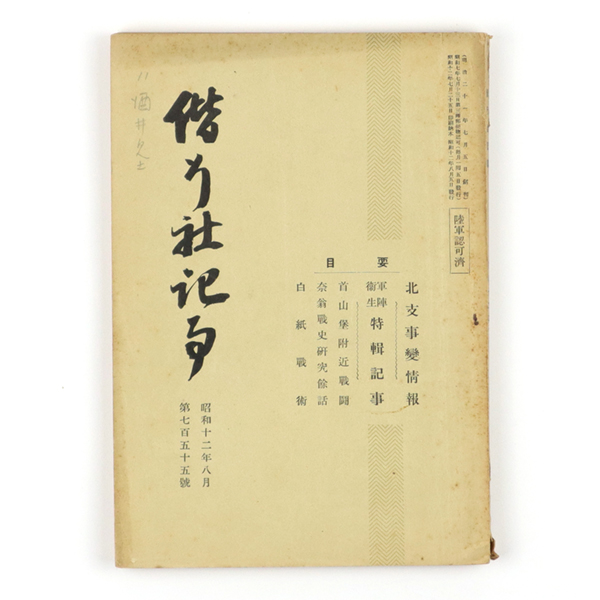 陸軍認可濟
要目
北支事變情報
軍陣
衞生
特輯記事
首山堡附近戰鬪
奈翁戰史研究餘話
白紙戰術
偕行社記事
昭和十二年八月
第七百五十五號